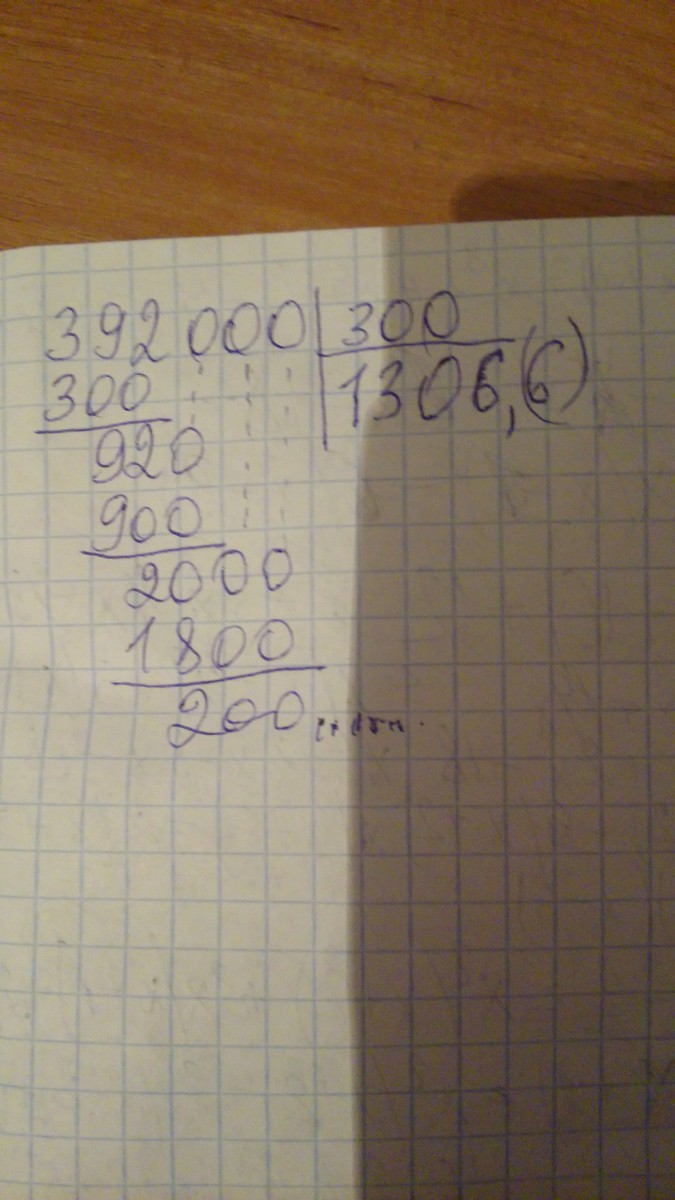 392000 | 300
300 1306,(6)
920
900
2000
1800
200